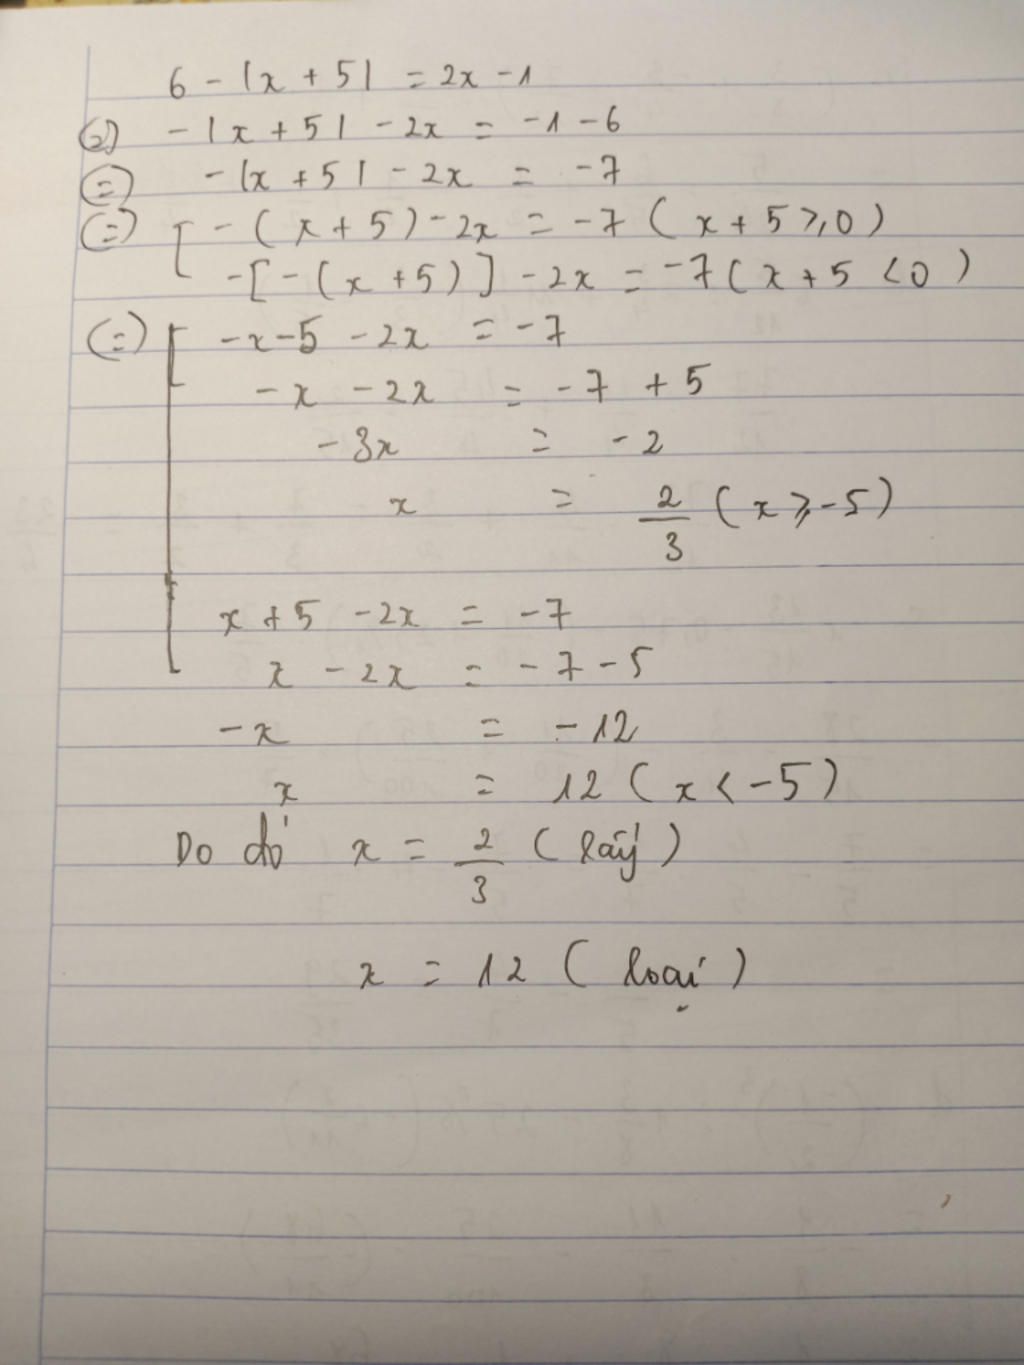 6 - |x + 5| = 2x - 1
(=) - |x + 5| - 2x = -1 - 6
(=) - |x + 5| - 2x = -7
(=) [ - (x + 5) - 2x = -7 (x + 5 ⩾ 0)
-[-(x + 5)] - 2x = -7 (x + 5 < 0)
(=) [ -x - 5 - 2x = -7
-x - 2x = -7 + 5
-3x = -2
x = 2/3 (x ⩾ -5)
x + 5 - 2x = -7
x - 2x = -7 - 5
-x = -12
x = 12 (x < -5)
Do đó x = 2/3 (lấy)
x = 12 (loại)